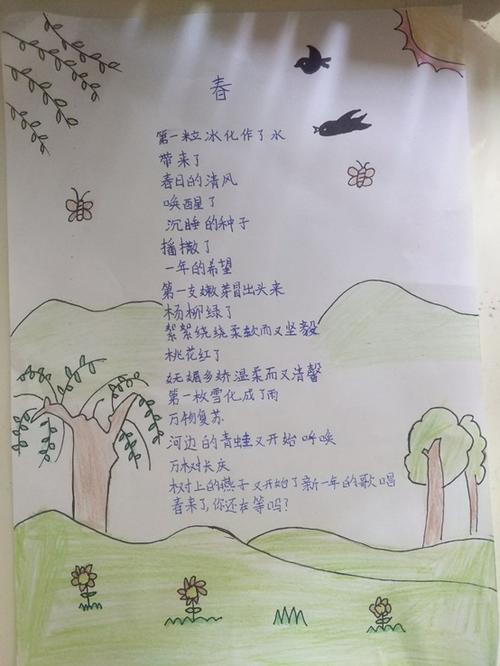 春
第一粒冰化作了水
带来了
春日的清风
唤醒了
沉睡的种子
播撒了
一年的希望
第一支嫩芽冒出头来
杨柳绿了
絮絮绕绕柔软而又坚毅
桃花红了
妩媚多娇温柔而又清馨
第一枚雪化成了雨
万物复苏
河边的青蛙又开始呼唤
万树长庆
树上的燕子又开始了新一年的歌唱
春来了,你还在等吗?